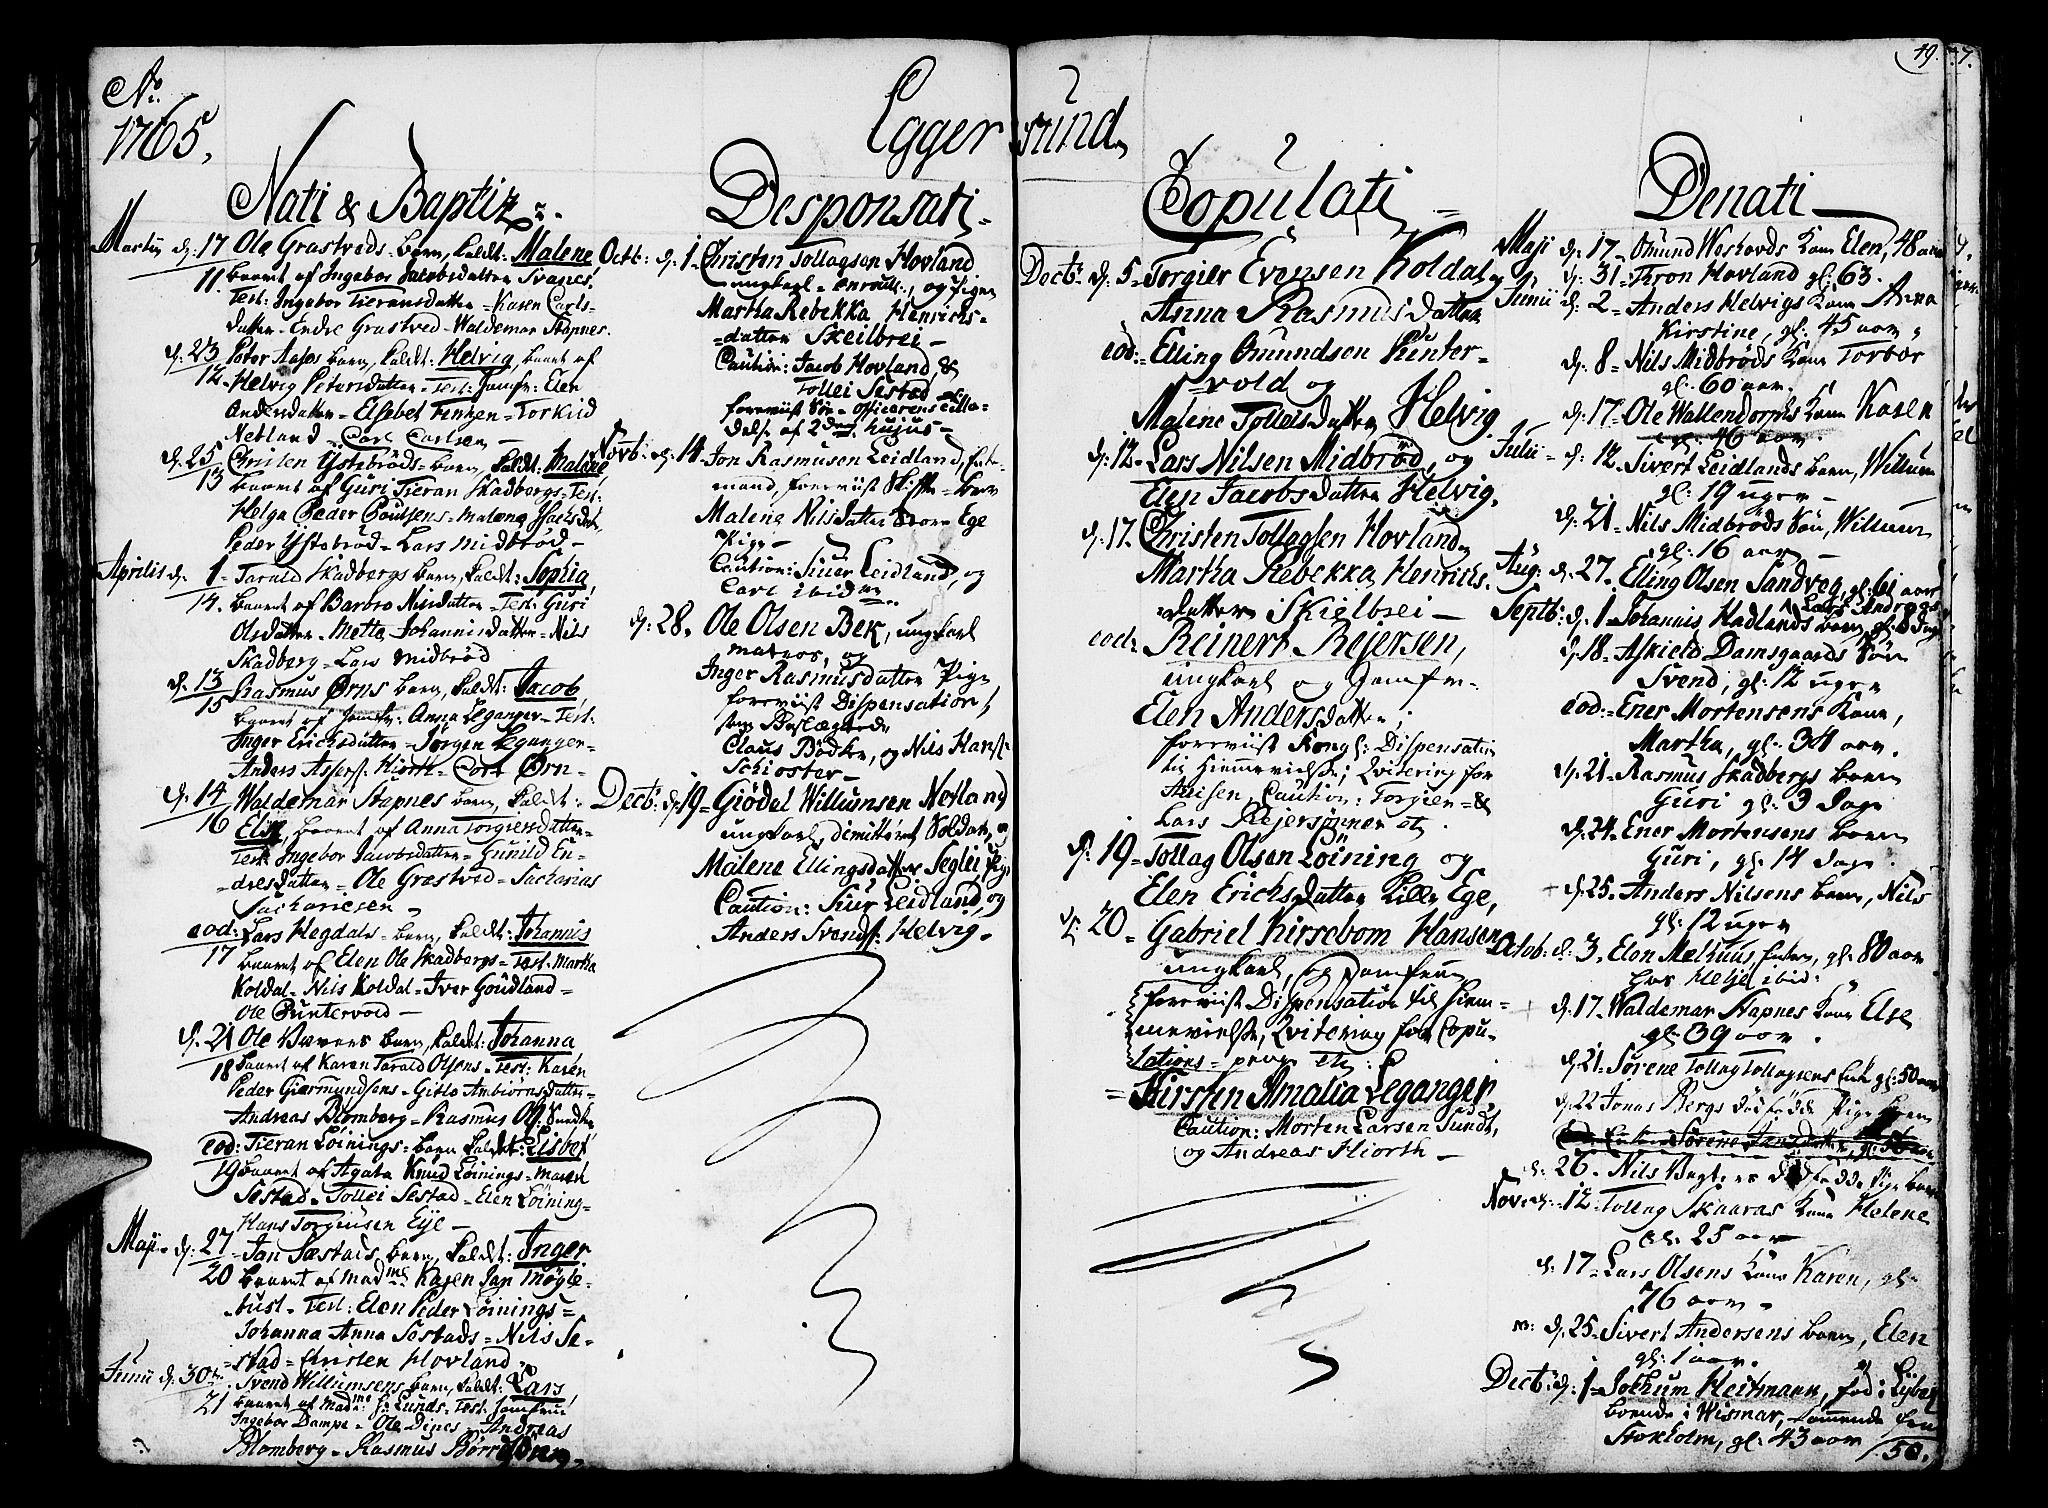 No. 1765.
Eggersund
49.
Nati & Baptiz
Martii d. 17 Ole Grastveds barn, kaldt: Malene
11 baaret af Ingebor Jacobsdatter Svanes.
Test: Ingebor Tieransdatter = Karen Carls-
datter = Endre Grastved = Waldemar Stapnes.
d. 23 Peter Aases barn, kaldt: Helvig, baaret af
12 Helvig Petersdatter = Test: Jomfr: Elen
Andersdatter = Elsebet Feyer = Torkild
Netland = Carl Carlsen
d. 25 Christen Ystebrøds barn, kaldt: Malene
13 baaret af Guri Tieran Skadbergs = Test:
Helga Peder Poulsens = Malena
Peder Ystebrød = Lars Midbrød =
Aprilis d. 1 Tarald Skadbergs barn, kaldt: Sophia
14 baaret af Barbro Nilsdatter = Test: Guri
Olsdatter = Metta Johannisdatter = Nils
Skadberg = Lars Midbrød
d. 13 Rasmus Ørns barn, kaldt: Jacob
15 baaret af Jomfr: Anna Leganger = Test:
Inger Ericksdatter = Jørgen Leganger =
Anders Assers: Hiorth = Carl Ørn =
d. 14 Waldemar Stapnes barn, kaldt:
16 Else, baaret af Anna Torgiersdatter =
Test: Ingebor Jacobsdatter = Gunild En-
dresdatter = Ole Grastved = Sacharias
Sachariesen
eod: Lars Hegdals barn, kaldt: Johannis
17 baaret af Elen Ole Skadbergs = Test: Martha
Koldal = Nils Koldal = Iver Goudland =
Ole Puntervold
d. 21 Ole Bævers barn, kaldt: Johanna
18 baaret af Karen Tarald Olsens = Test: Karen
Peder Giermundsens = Gitlo Ambiørnsdatter =
Andreas Blomberg = Rasmus Ols:
eod: Tieran Løinings barn kaldt: Lisbet
19 baaret af Agata Knud Løinings = Maret
Sestad = Tollei Sestad = Elen Løining =
Hans Torgiusen Eije
Maji d. 27 Jan Sæstads barn, kaldt: Inger
20 baaret af Madme Karen Jan Møgle-
bust = Test: Elen Peder Løinings =
Johanna Anna Sestads = Nils Se-
stad = Christen Hovland
Junii d. 30 Svend Willumsens barn, kaldt: Lars
21 baaret af Madme Lunds = Test: Jomfrue
Ingebor Dampe = Ole Dines = Andreas
Blomberg = Rasmus
Desponsati
Octb: d. 1 Christen Tollagsen Hovland
ungkarl = enroull:, og Pigen
Martha Rebekka Henrichs-
datter Skeilbrei
Caution: Jacob Hovland, &
Tollei Sestad
foreviist Søe-Officerens tilla-
delse af 2den hujus
Novb. d. 14 Jon Rasmusen Leidland, Enke-
mand, foreviist Skifte-brev
Malena Nilsdatter Store Ege
Pige
Caution: Siver Leidland, og
Carl ibidem.
d. 28. Ole Olsen Bek, ungkarl
matros, og
Inger Rasmusdatter Pige
foreviist Dispensation
som Beslægtede
Claus Bødker, og Nils Hans:
Schioster
Decb: d. 19 Giødel Willumsen Netland
ungkarl, dimitteret Soldat, og
Malene Ellingsdatter Seglei Pig
Caution: Siver Leidland, og
Anders Svends: Helvig
Copulati
Decb: d. 5 Torgier Evensen Koldal og
Anna Rasmusdatter
eod: Elling Omundsen Punter-
vold og
Malene Tolleisdatter Helvig
d. 12 Lars Nilsen Midbrød, og
Elen Jacobsdatter Helvig.
d. 17. Christen Tollagsen Hovland
Martha Rebekka Henrichs-
datter Skielbrei
eod: Reinert Rejersen,
ungkarl og Jomfru
Elen Andersdatter;
foreviist Kongl: Dispensation
til Hiemmevielse, Qvitering for
Avisen, Caution: Torgier &
Lars Rejersønner etc
d. 19 Tollag Olsen Løining og
Elen Ericksdatter Lille Ege,
d. 20 Gabriel Kirsebom Hansen
ungkarl, og Jomfrue
foreviist Dispensation til Hiem-
mevielse, Qvitering for Copu-
lations-penge etc:
Kirsten Amalia Leganger
Caution: Morten Larsen Sundt,
og Andreas Hiorth
Denati
Maji d. 17 Omund Weshovds Kone Elen, 48 aar
d. 31 Thron Hovland gl: 63.
Junii d. 2 Anders Helvigs Kone Anna
Kirstine, gl: 45 aar
d. 8 Nils Midbrøds Kone Torbor
gl: 60 aar.
d. 17 Ole Wallendorphs Kone Karen
gl: 46 aar.
Julii d. 12. Sivert Leidlands barn, Willum
gl: 19 uger
d. 21 Nils Midbrøds Søn, Willum
gl: 16 aar
Aug: d. 27. Elling Olsen Sandveg, gl: 61 aar
Septb: d. 1 Johannis Hadlands barn Lars Andreas gl: 8 dage
d. 18 Askield Damsgaards Søn
Svend, gl: 12 uger
eod: Ener Mortensens Kone,
Martha, gl: 34 aar.
d. 21 Rasmus Skadbergs barn
Guri gl: 3 Dage
d. 24 Ener Mortensens barn
Guri, gl: 14 dage.
d. 25. Anders Nilsens barn, Nils
gl: 12 uger
Octob: d. 3. Elen Melhuus, Enke, gl: 80 aar
hos Helje ibid:
d. 17 Waldemar Stapnes Kone Else
gl: 39 aar.
d. 21 Sørene Tollag Tollagsens Enk gl: 50 aar
d. 22 Jonas Bergs dødfødde Pige barn
d. 26. Nils Bagters dødfødde Pige barn
Nov: d. 12 Tollag Skaaras Kone Helene
gl: 25 aar
d. 17 Lars Olsens Kone Karen, gl:
76 aar
d. 25 Sivert Andersens barn, Elen
gl: 1 aar.
Decb: d. 1 Jochum Heitmann, fød i Lybeg
boende i Wismar, kommende fra
Stokholm, gl: 43 aar
50.